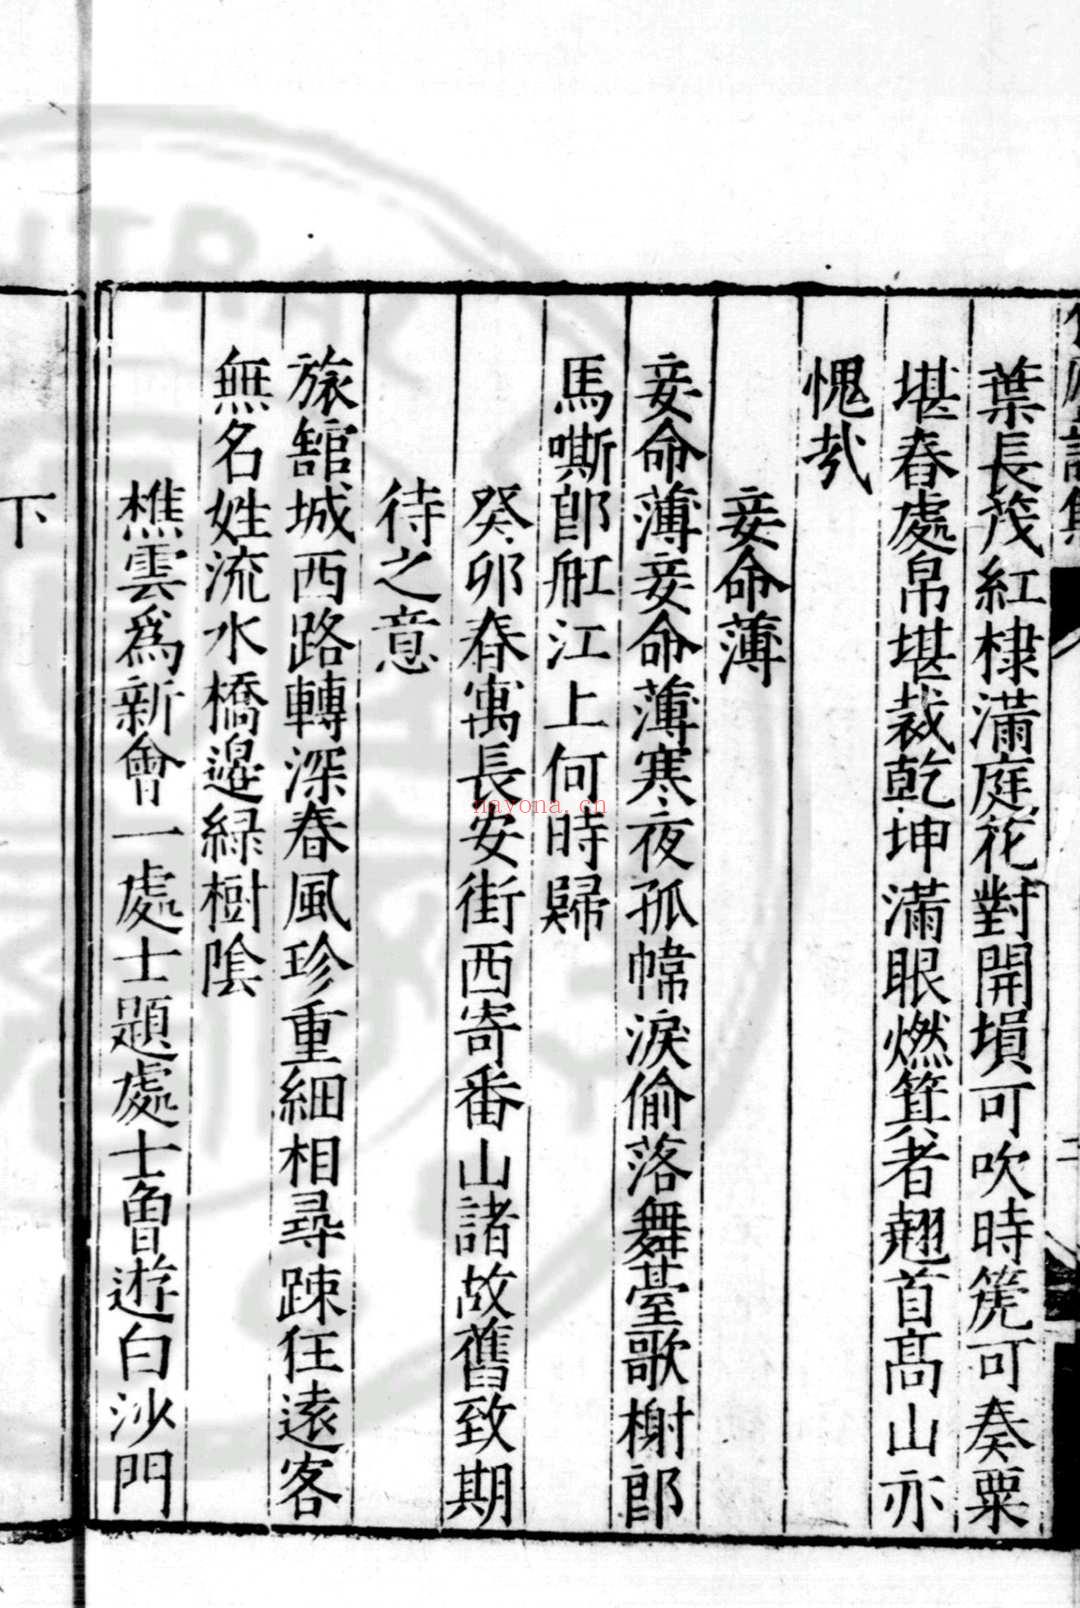 葉長茂紅棣滿庭花對開塤可吹時箎可奏粟
堪舂處帛堪裁乾坤滿眼燃箕者翹首髙山亦
愧㢤
妾命薄
妾命薄妾命薄寒夜孤幃淚偷落舞臺歌榭郎
馬嘶郎舡江上何時歸
癸夘春寓長安街西寄番山諸故舊致期
待之意
旅舘城西路轉深春風珍重細相尋踈狂遠客
無名姓流水橋邉緑樹隂
樵雲爲新會一處士題處士魯遊白沙門
下
nayona.cn